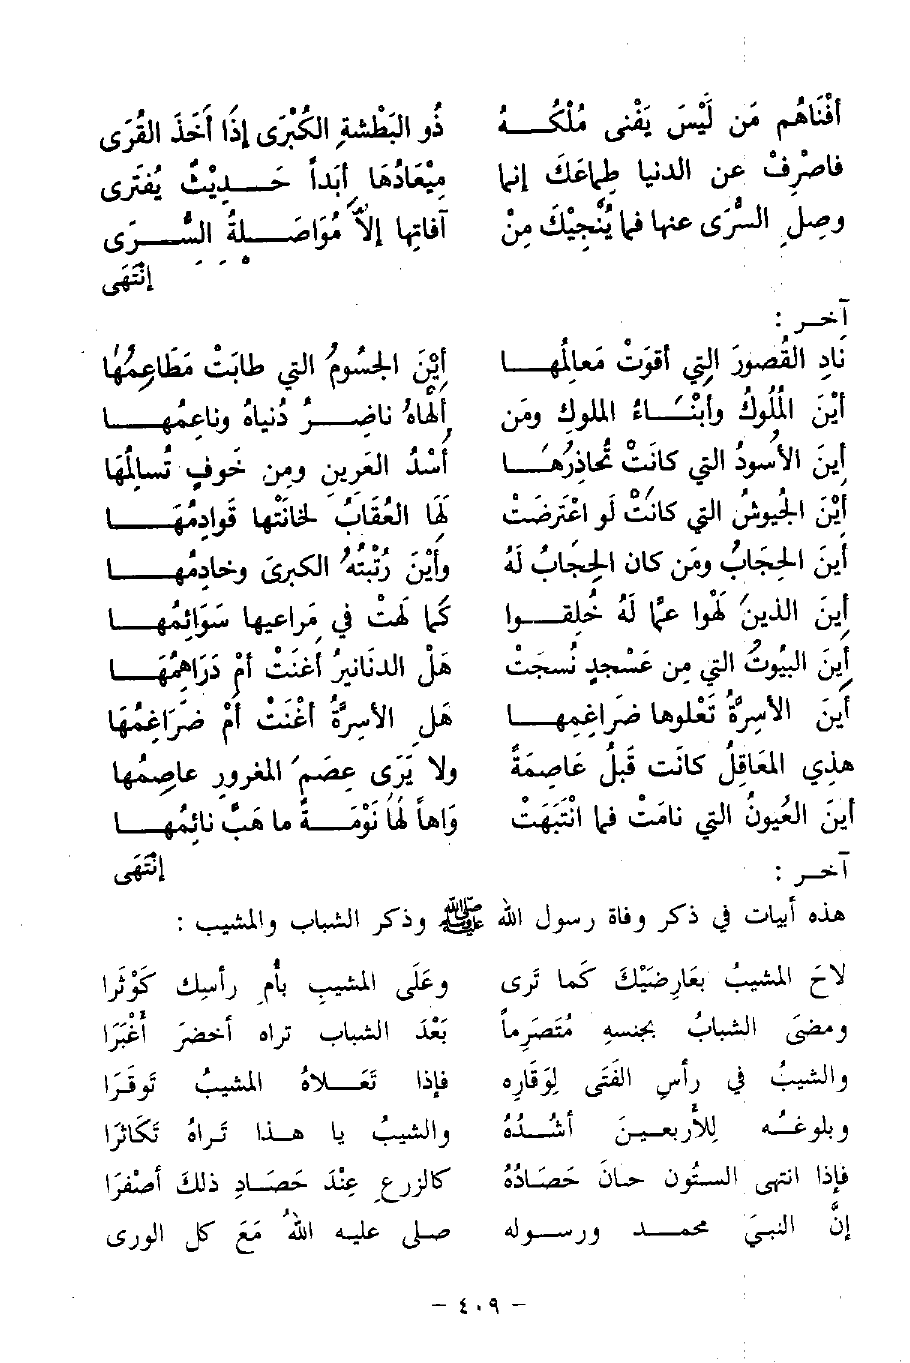 أفْنَاهُم مَن لَيْسَ يَفْنى مُلْكُهُ ذُو البَطْشةِ الكُبْرَى إذَا أَخَذَ القُرَى
فاصْرِفْ عن الدنيا طِماعَكَ إنما مِيْعَادُهَا أَبَداً حَدِيْثٌ يُفتَرى
وصِلِ السُّرَى عنها فما يُنْجِيْكَ مِنْ آفاتِها إلاَّ مُوَاصَلِةُ السُّرَى
إنْتَهَى
آخر :
نَادِ القُصورَ التِي أقوَتْ مَعالِمُها أيْنَ الجسُومُ التي طابَتْ مَطَاعِمُهَا
أيْنَ المُلُوكُ وأبْنَاءُ الملوكِ ومَن ألْهَاهُ ناضِرُ دُنياهُ وناعِمُها
أينَ الأسودُ التي كانَتْ تُحَاذِرُهَا أُسْدُ العَرينِ ومِن خَوفٍ تُسالِمُهَا
أيْنَ الجُيوشُ التي كانَتْ لَو اعْتَرضَتْ لَهَا العُقَابُ لخانَتْها قَوادِمُهَا
أينَ الحِجَابُ ومَن كان الحِجَابُ لَهُ وأيْنَ رُتْبَتُهُ الكبرىَ وخادِمُها
أينَ الذينَ لَهَوا عمَّا لَهُ خُلِقوا كما لَهتْ في مَراعيها سَوَائِمُها
أينَ البيُوتُ التي مِن عَسْجدٍ نُسجَتْ هَلْ الدنَانيرُ أغنَتْ أمْ دَرَاهِمُهَا
أينَ الأسِرَّةُ تَعْلوها ضرَاغِمها هَلِ الأسِرَّةُ أغْنَتْ أمْ ضرَاغِمُهَا
هذِي المعَاقِلُ كانَت قَبلُ عَاصِمَةً ولا يَرَى عِصَمَ المغرورِ عاصِمُها
أينَ العُيونُ التي نامَتْ فما انْتَبَهَتْ وَاهاً لَهَا نَوْمَةً ما هَبَّ نائِمُها
إنْتَهَى
آخر :
هذه أبيات في ذكر وفاة رسول الله ﷺ وذكر الشباب والمشيب :
لاحَ المشيبُ بعَارِضَيْكَ كَما تَرى وعَلَى المشيبِ بأمِ رأسِك كَوْثَرا
ومضىَ الشبابُ بجنسهِ مُتَصَرِماً بَعْدَ الشباب تراه أخضرَ أغْبَرَا
والشيبُ في رأسِ الفَتَى لِوَقَارِه فإذا تَعَلاهُ المشيبُ تَوقَرَا
وبلوغُه لِلأربعينَ أشُدُهُ والشيبُ يا هذا تَراهُ تَكَاثرَا
فإذا انتهى الستُون حانَ حَصَادُهُ كالزرعِ عِنْدَ حَصَادِ ذلكَ أصْفرَا
إنَّ النبيَ محمد ورسوله صلى عليه اللهُ مَعَ كل الورى
- ٤٠٩ -